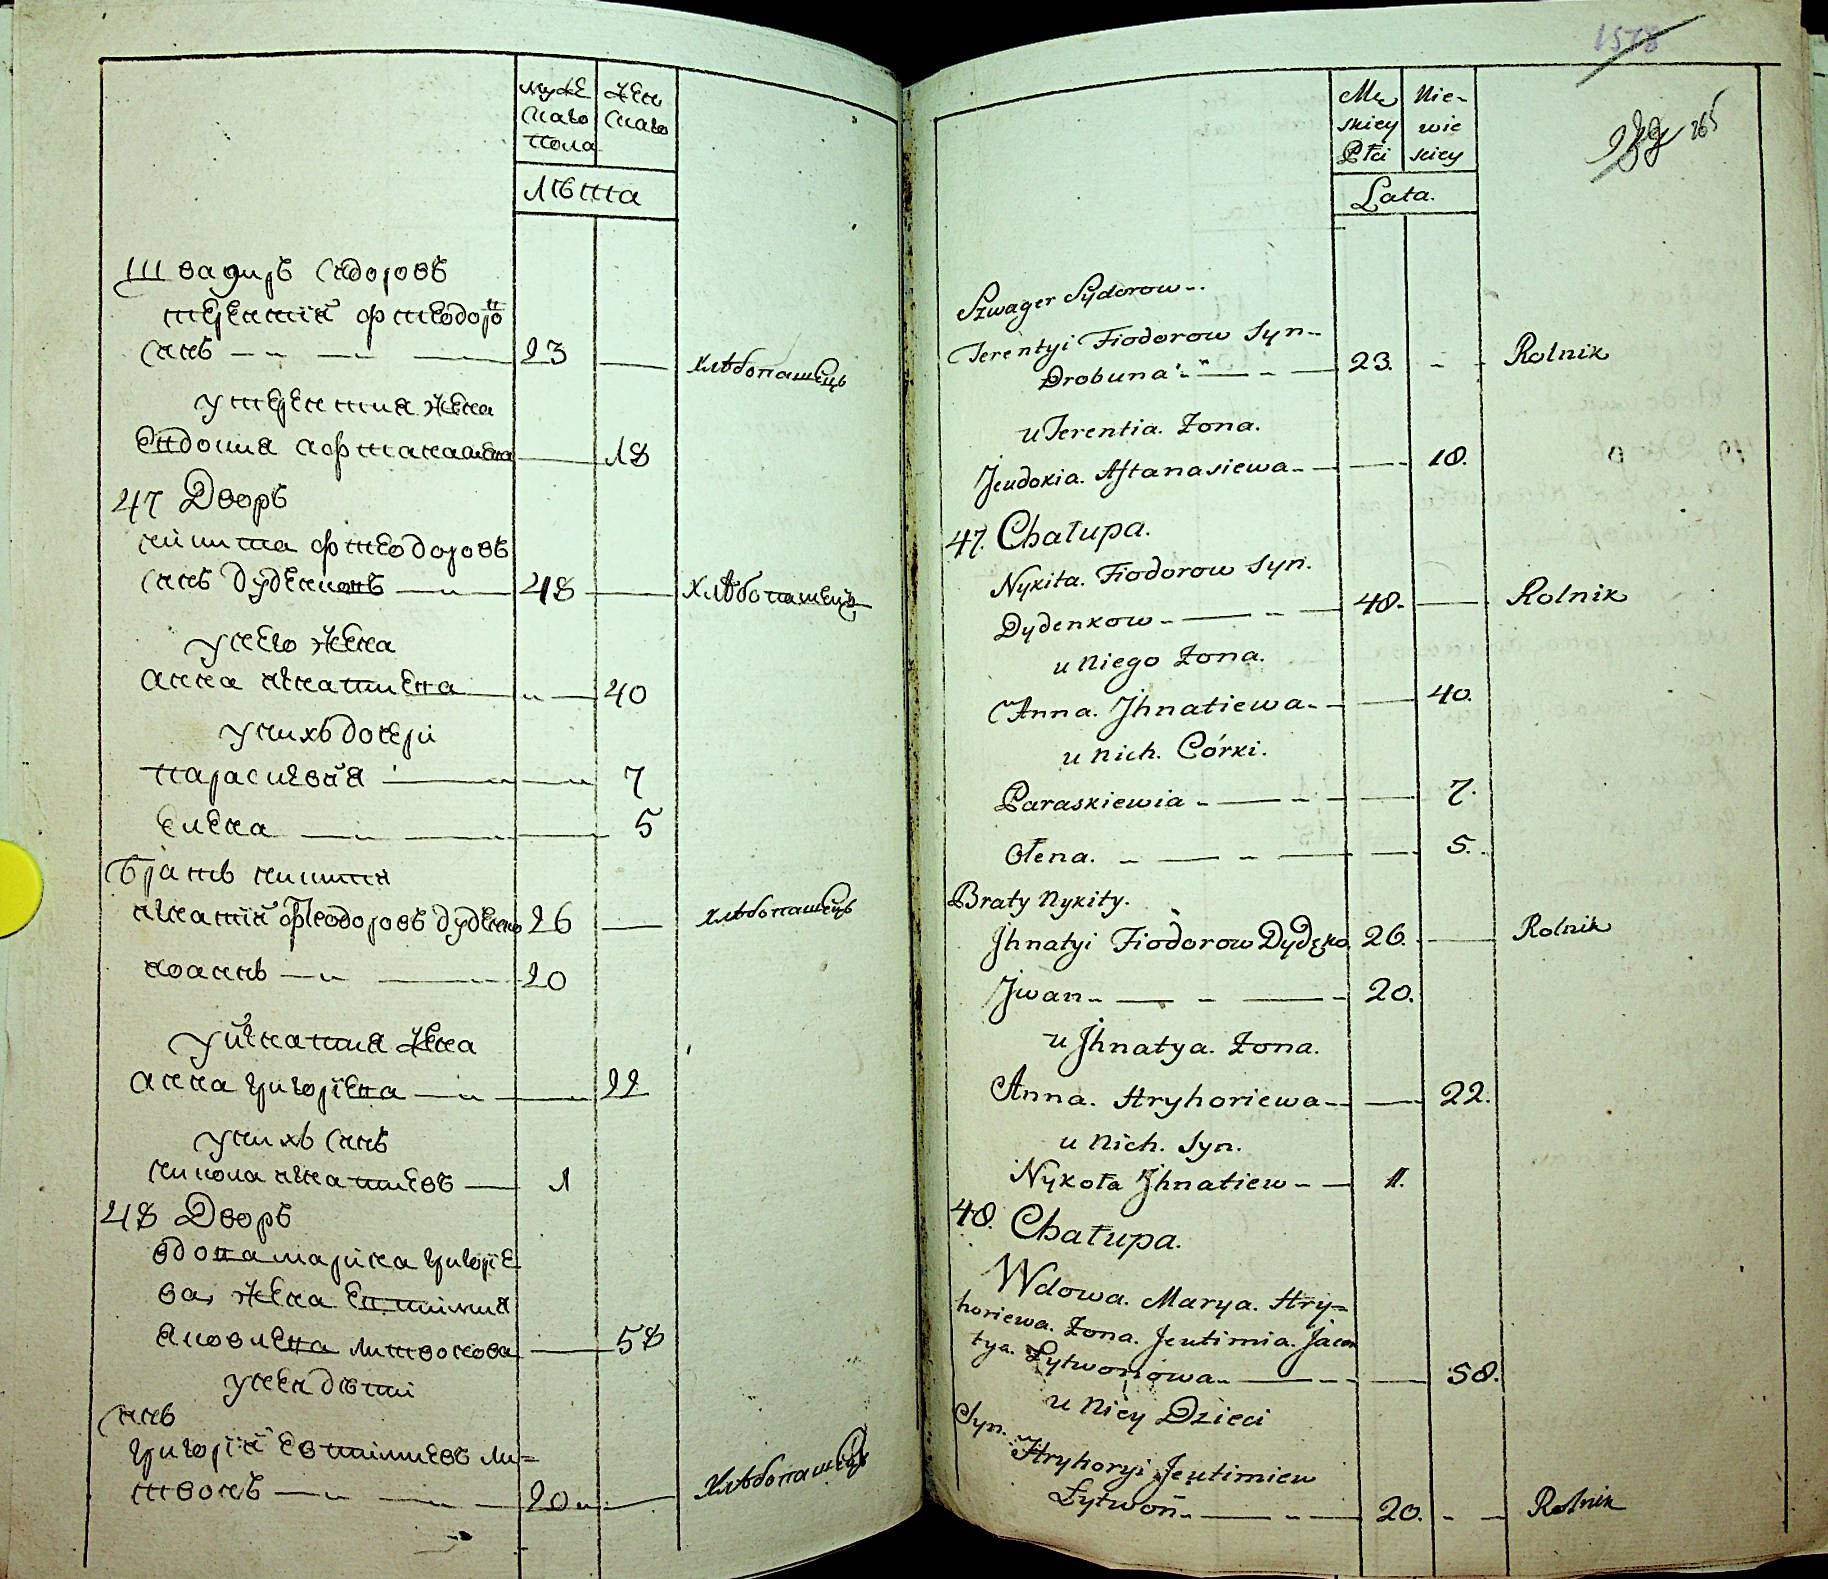 муже
скаго
пола
жен
скаго
Лѣта
Швагиръ Сидоровъ
терентий фтеодоро
синъ 23 хлѣбопашець
у терентия жена
Евдокия афтанасиева 18
47 Дворъ
никита фтеодоровъ
синъ дуденковъ 48 Хлѣбопашець
у него жена
анна игнатиева 40
у нихъ дочери
параскевия 7
Елена 5
братъ никити
игнатий феодоровъ дуденко 26 хлѣбопашець
иоаннъ 20
у игнатия жена
анна григориева 22
у нихъ синъ
никола игнатиевъ 1
48 Дворъ
вдова мариа григорие
ва, жена Евтимия
яковлева литвонова 58
у неи дѣти
синъ
григорий Евтимиевъ ли=
твонъ 20 Хлѣбопашець
1578
265
Mę
skiey
Płci
Nie-
wie
sciey
Lata.
Szwager Sydorow
Terentyi Fiodorow Syn
Drobuna 23. Rolnik
u Terentia. Żona.
Jeudokia. Aftanasiewa 18.
47. Chałupa.
Nykita. Fiodorow Syn.
Dydenkow 48. Rolnik
u Niego Żona.
Anna. Jhnatiewa 40.
u Nich. Córki.
Paraskiewia 7.
Ołena. 5.
Braty Nykity.
Jhnatyi Fiodorow Dydęko 26. Rolnik
Jwan 20.
u Jhnatya. Żona.
Anna. Hryhoriewa 22.
u Nich. Syn.
Nykoła Jhnatiew 1.
48. Chałupa.
Wdowa. Marya. Hry=
horiewa. Żona. Jeutimia. Jacen
tya. Łytwoniowa 58.
u Niey Dzieci
Syn.
Hryhoryi Jeutimiew
Łytwoń 20. Rolnik